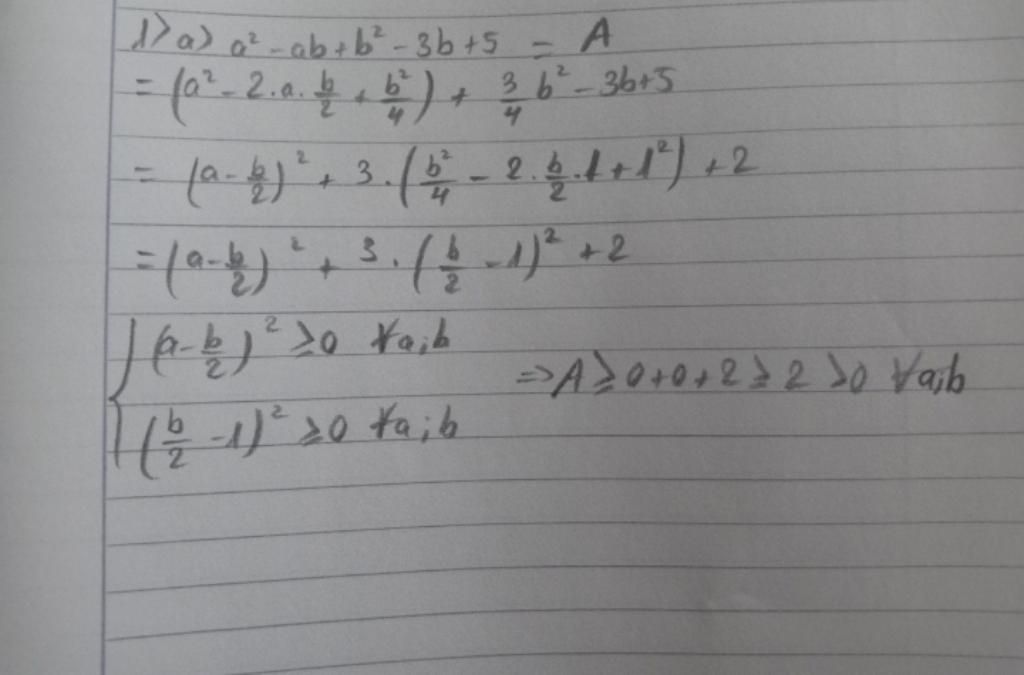 1> a> a² - ab + b² - 3b + 5 = A
= (a² - 2.a. b/2 + b²/4) + 3/4 b² - 3b + 5
= (a - b/2)² + 3.(b²/4 - 2. b/2 .1 + 1²) + 2
= (a - b/2)² + 3.(b/2 - 1)² + 2
(a - b/2)² ⩾ 0 ∀a;b
=> A ⩾ 0 + 0 + 2 ⩾ 2 > 0 ∀a;b
(b/2 - 1)² ⩾ 0 ∀a;b